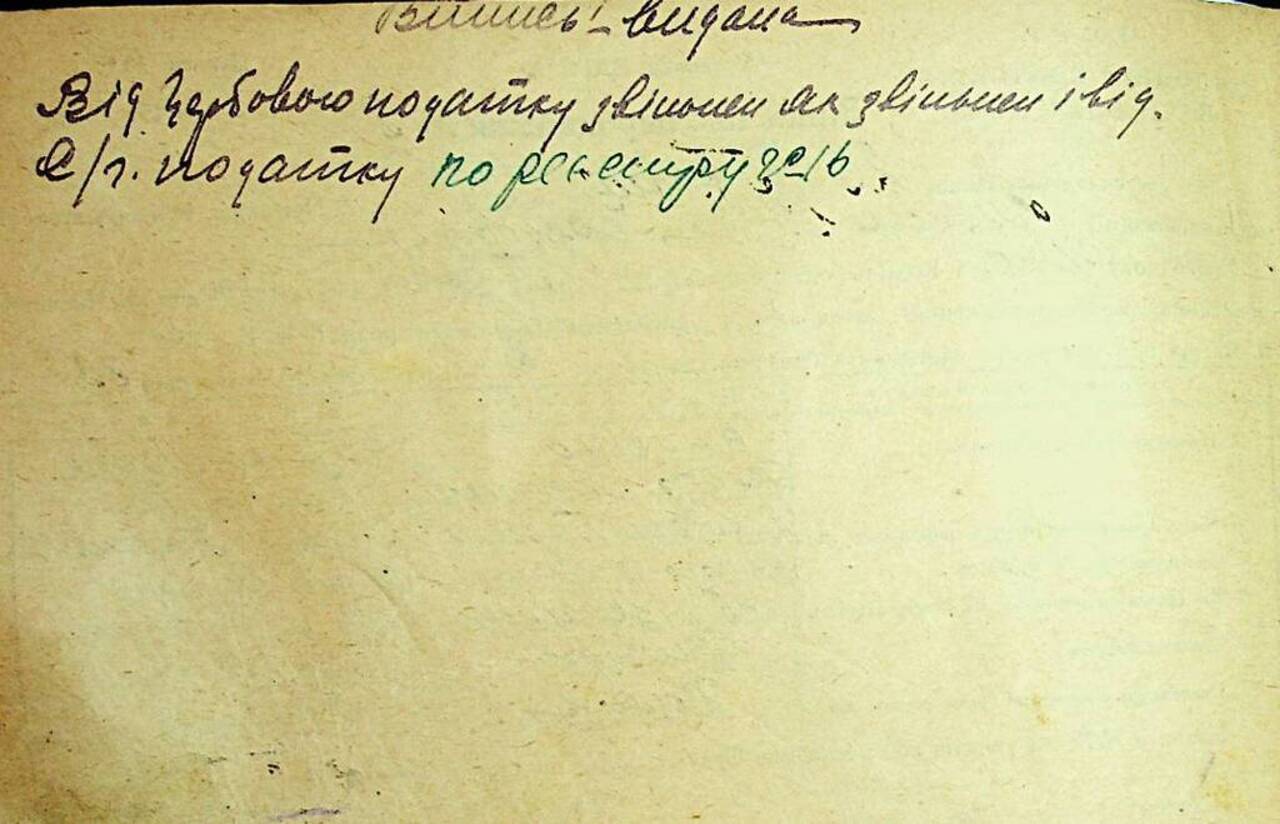 Випись – видана
Від Гербового податку звільнен як звільнен і від.
С/г. податку по реєстру